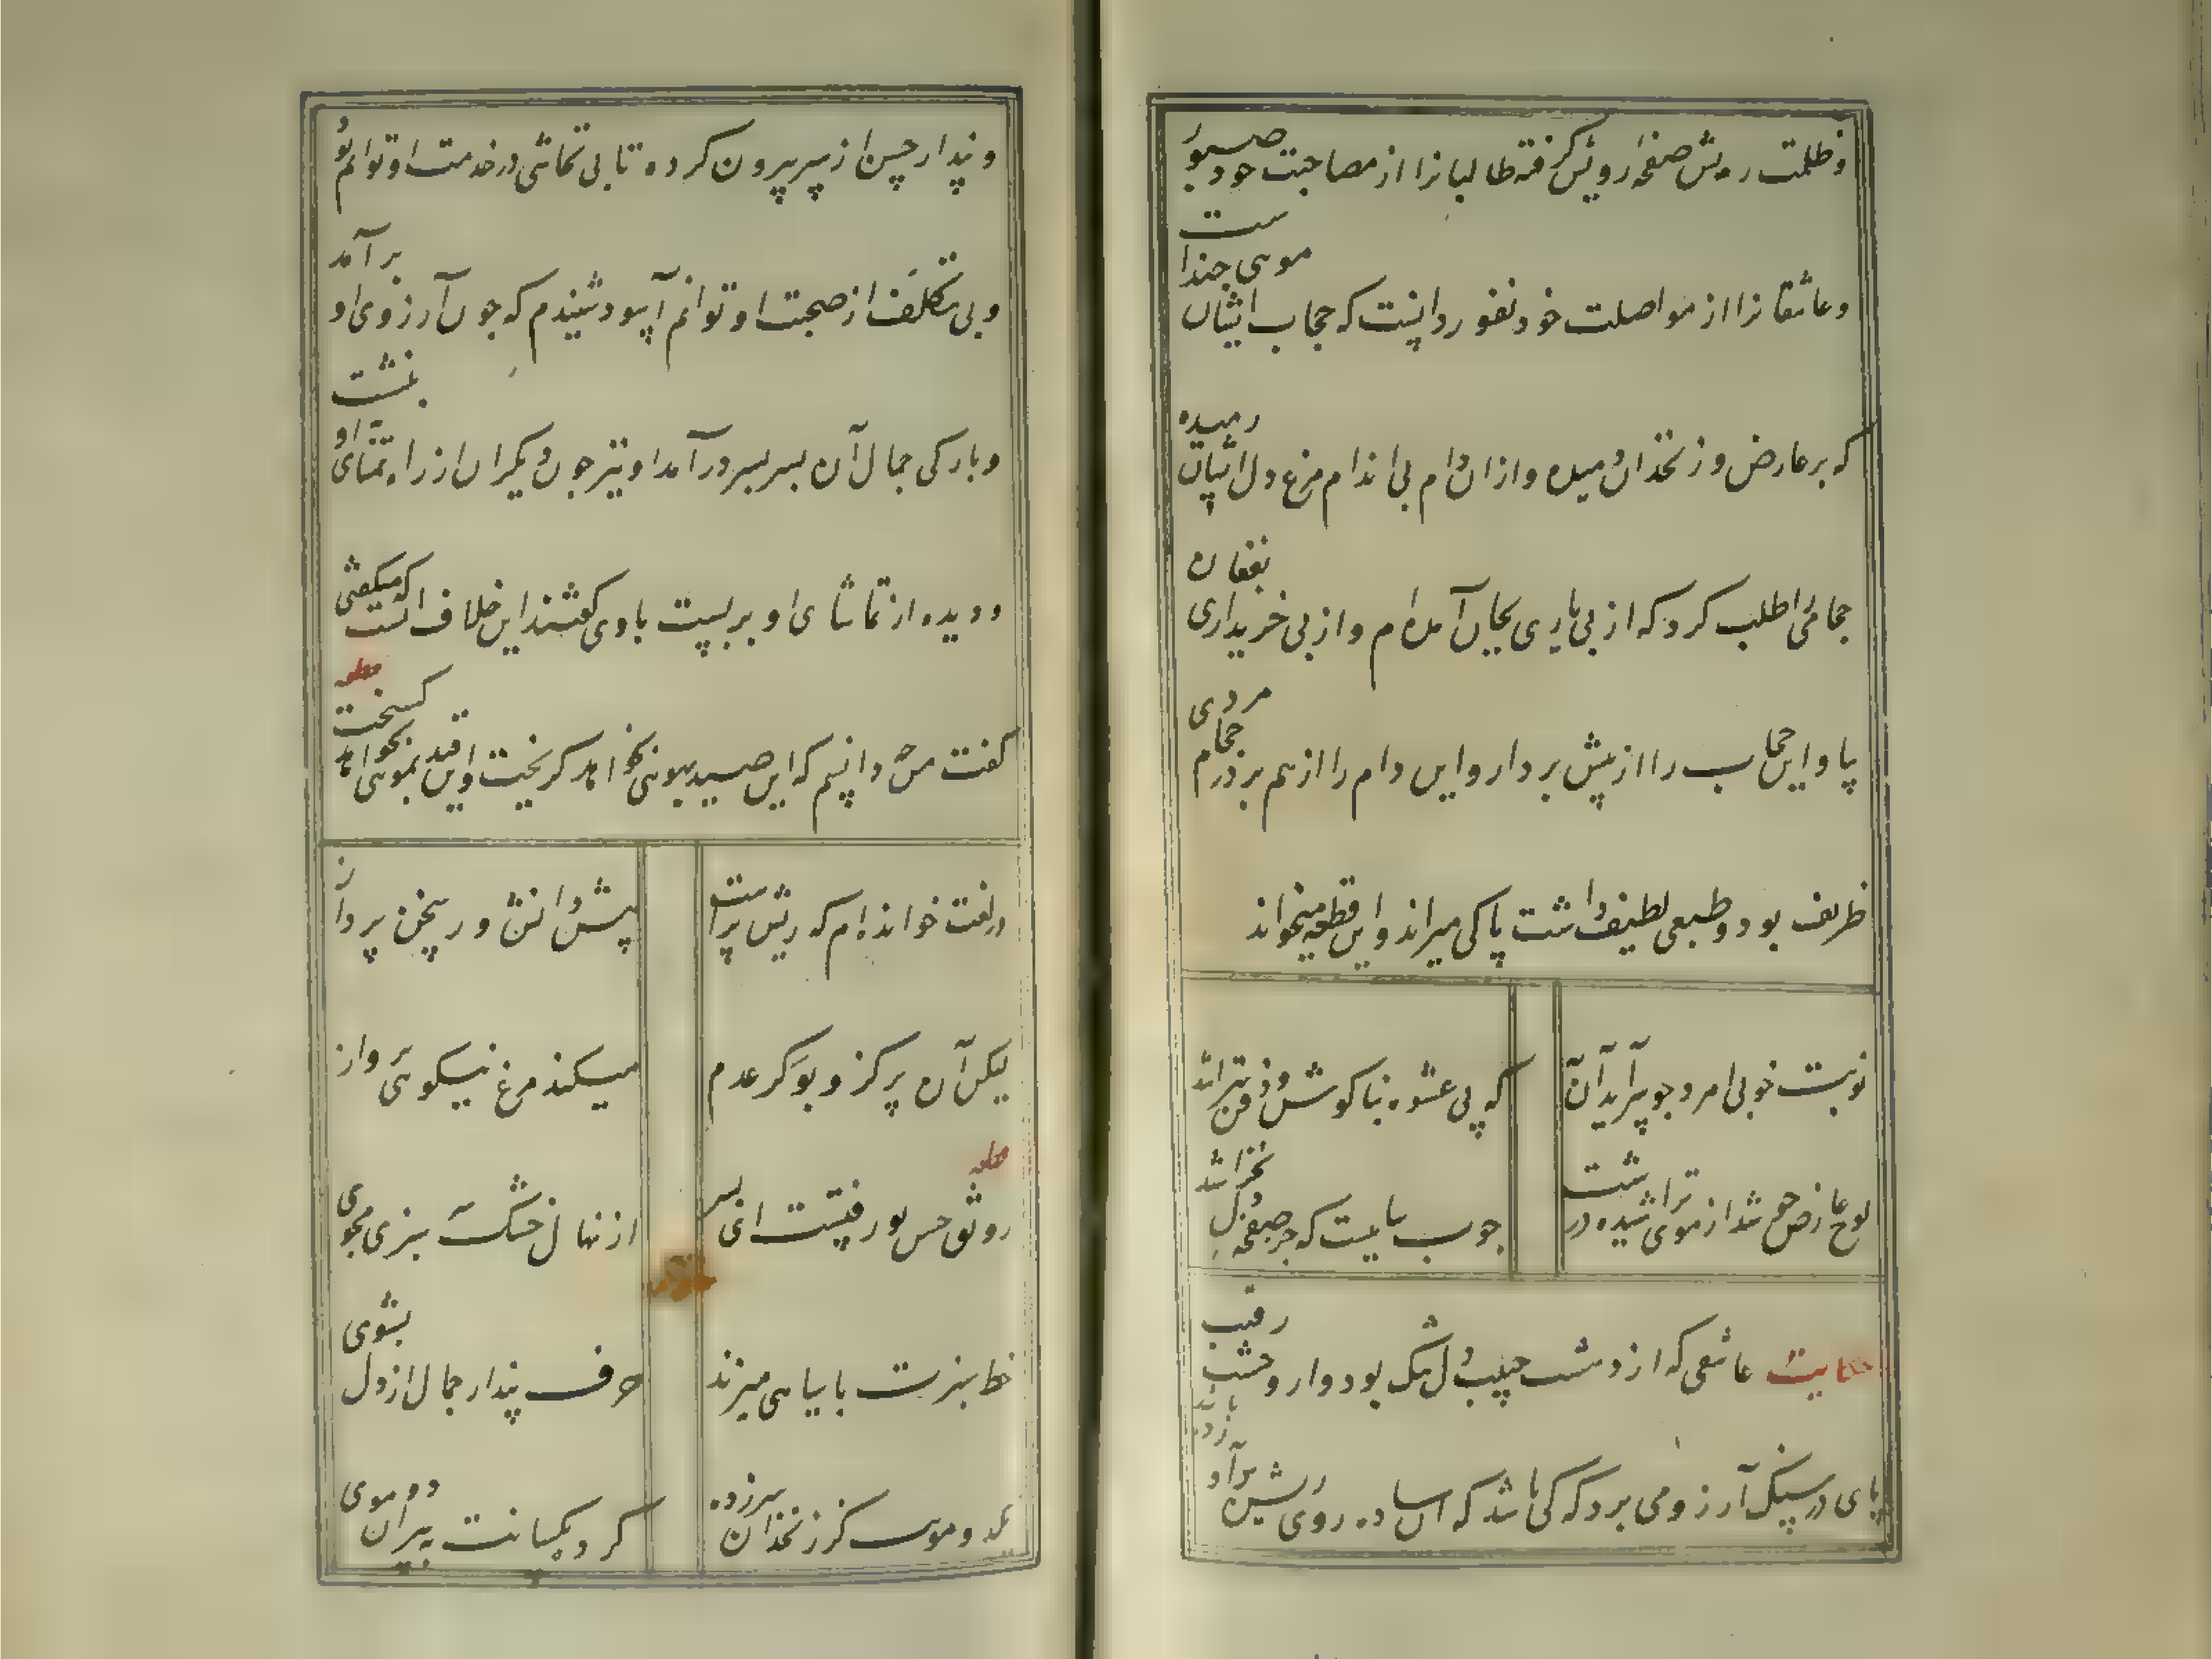 و ظلمت ریش صفحه رویش گرفته طالبانرا از مصاحبت خود صبور
و عاشقانرا از مواصلت خود نفور دانست که حجاب ایشان موی چنداست
که بر عارض و زنخدان دمیده و ازان دام بی اندام مرغ دل ایشان رمیده
حجامی را طلب کرد که از بی یاری بجان آمده ام و از بی خریداری بفغان
بیا و این حجاب را از پیش بردار و این دام را از هم بر درم حجام مردی
ظریف بود و طبعی لطیف داشت پاکی میراند و این قطعه میخواند
نوبت خوبی امرد چو سر آید آن به
که پی عشوه بناگوش و ذقن نتراشد
لوح عارض چو شد از موی تراشیده درشت
چوب سابیست که جز صفحه دل نخراشد
حکایت عاشقی که از دست حبیب دل تنگ بود و از وحشت رقیب
پای در سنگ آرزو می برد که کی باشد که آن ساده روی ریش بر آورد
و پندار حسن از سر بیرون کرده تا بی تحاشی در خدمت او توانم بود
و بی تکلف از صحبت او توانم آسود شنیدم که چون آرزوی او بر آمد
و بارکی جمال آن پسر بسر در آمد او نیز چون دیگران از راه تمنای او بنشست
و دیده از تماشای او بر بست با وی گفتند این خلاف آنست که میگفتی
گفت من چه دانستم که این صید بمویی نخواهد گریخت و این قید بمویی نخواهد گسیخت قطعه
در لغت خوانده ام که ریش پرست
پیش دانش ور سخن پرداز
لیکن آن پر کزو بوکر عدم
میکند مرغ نیکوئی پرواز
قطعه
رونق حسن تو رفتست ای پسر
از نهال خشک سبزی مجوی
خط سبزت با سیاهی میزند
حرف پندار جمال از دل بشوی
یکدو مویت کز زنخدان سر زده
کردیکسانت به پیران دو موی